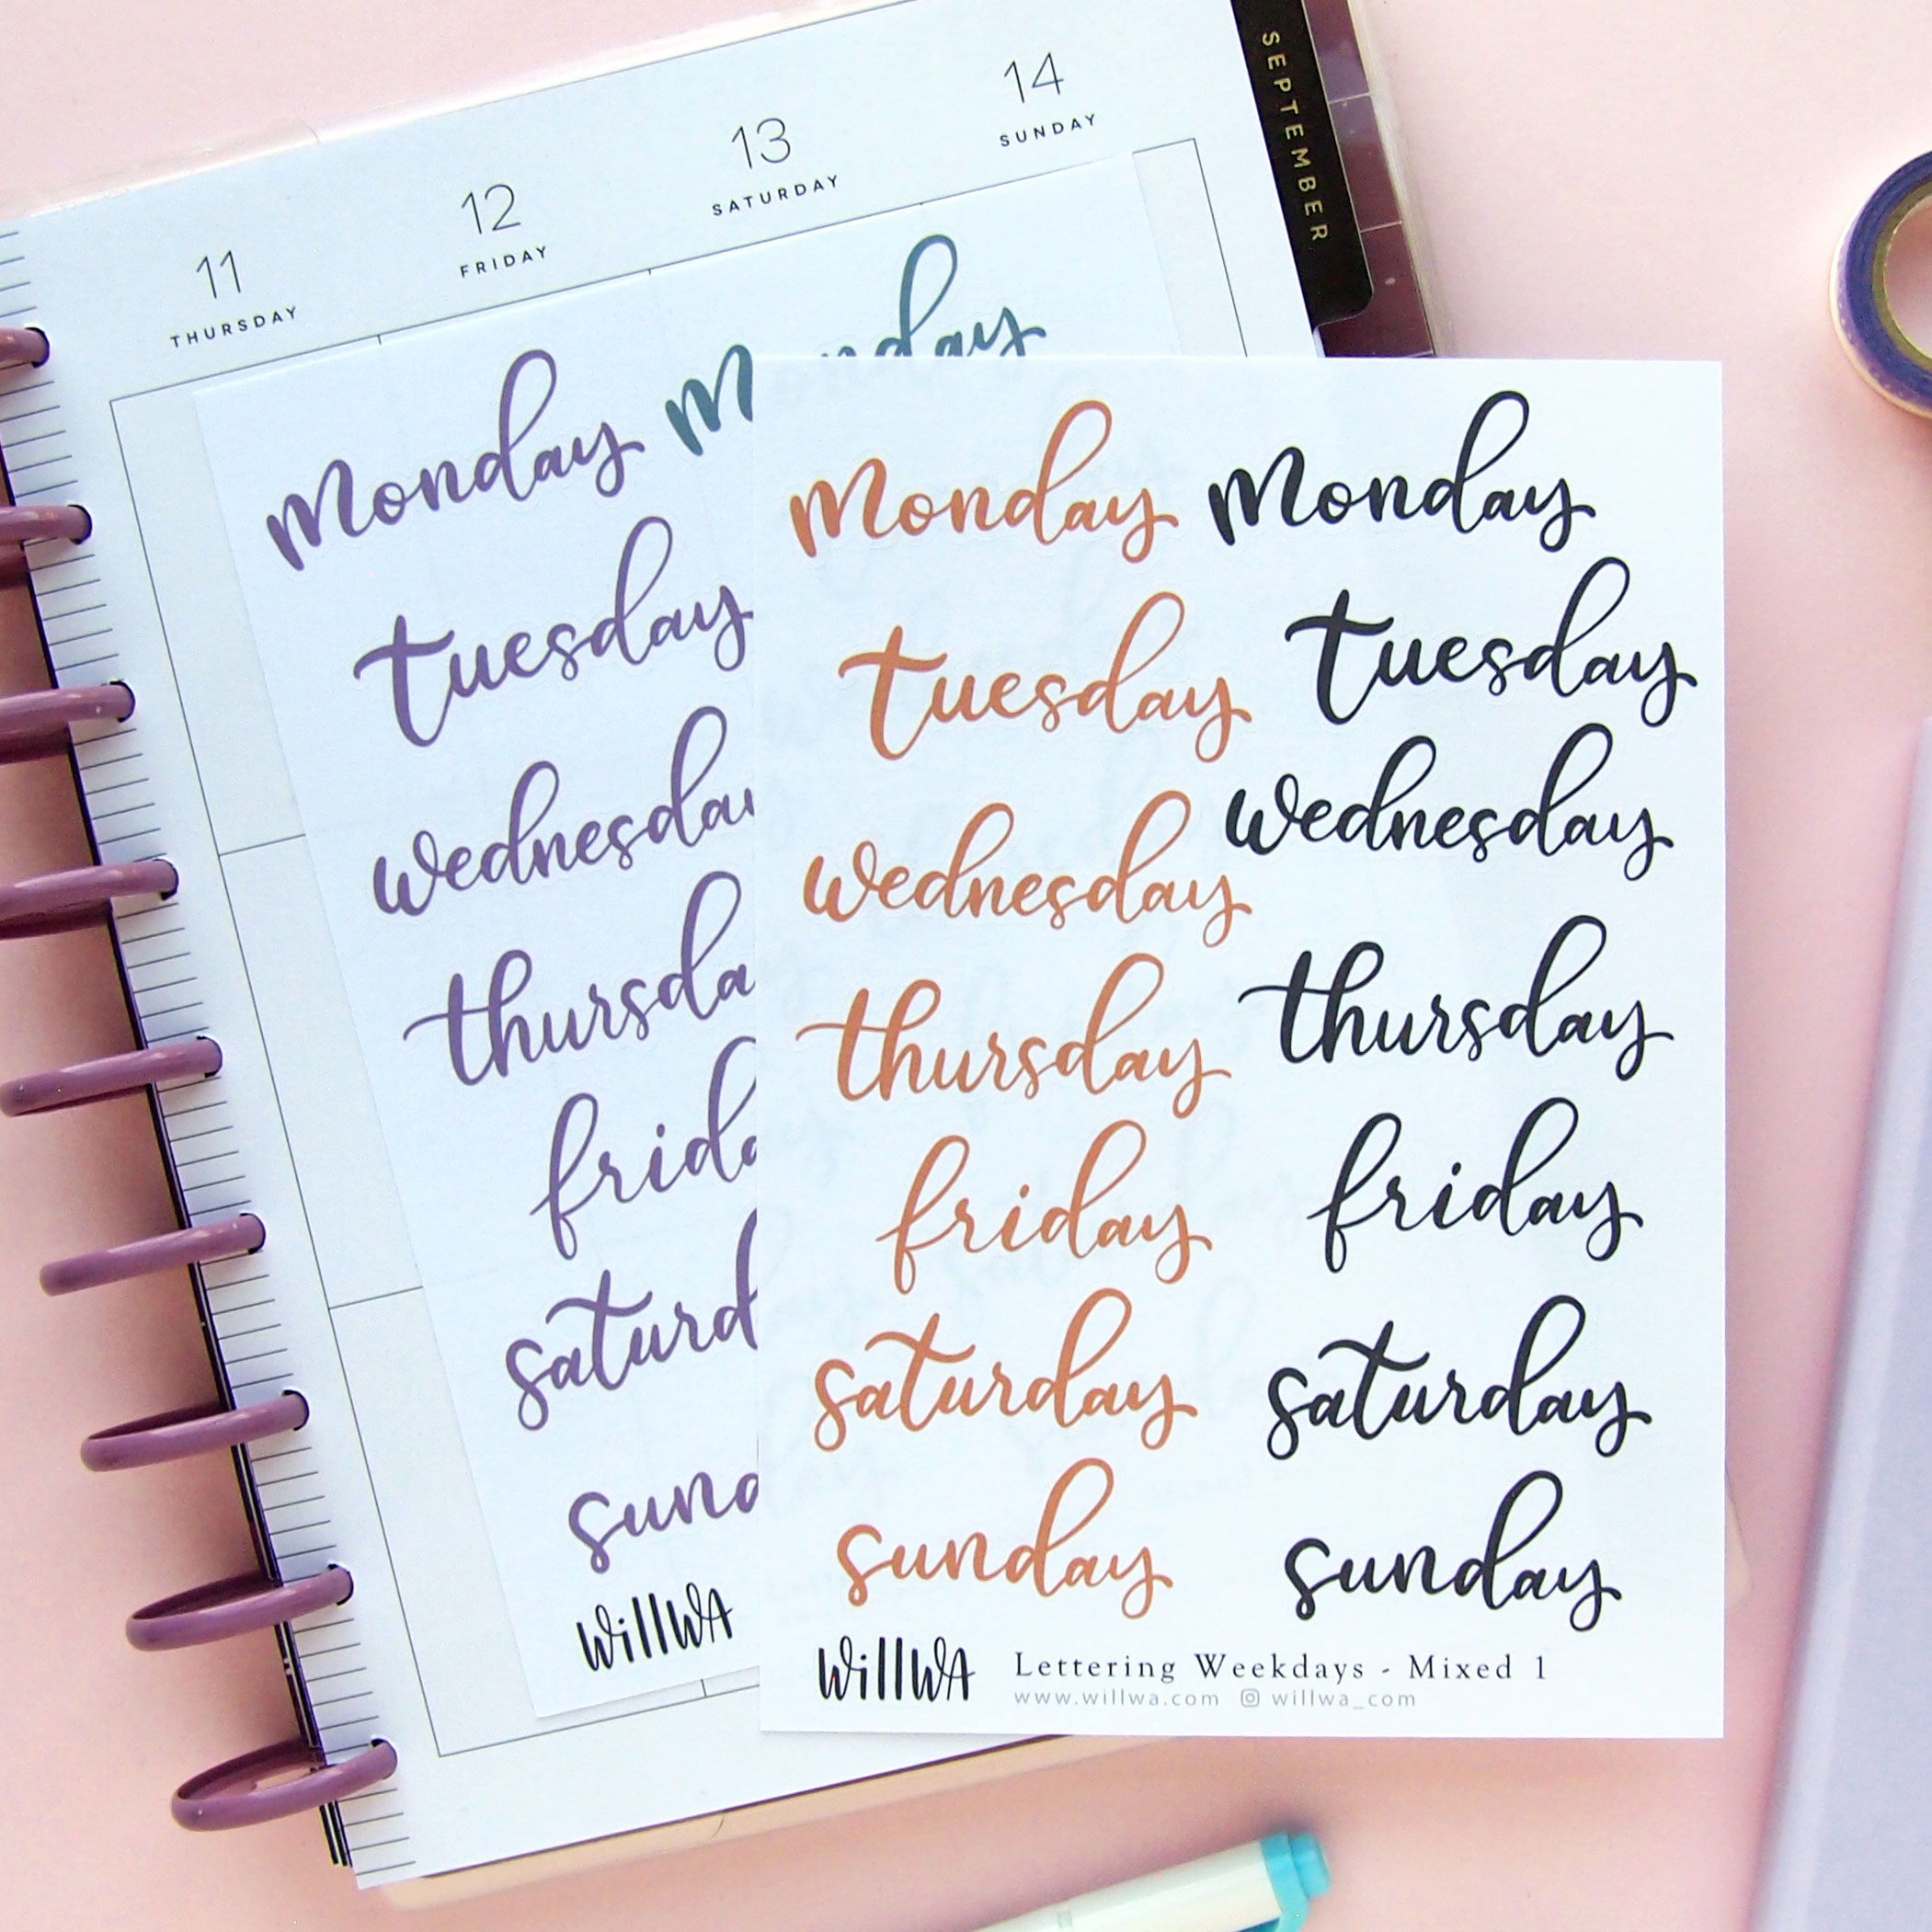 SEPTEMBER
11
THURSDAY
12
FRIDAY
13
SATURDAY
14
SUNDAY
Monday
tuesday
wednesday
thursda
frida
saturd
sund
WillWA
Monday monday
tuesday tuesday
wednesday wednesday
thursday thursday
friday friday
saturday saturday
sunday sunday
WillWA
Lettering Weekdays - Mixed 1
www.willwa.com willwa_com